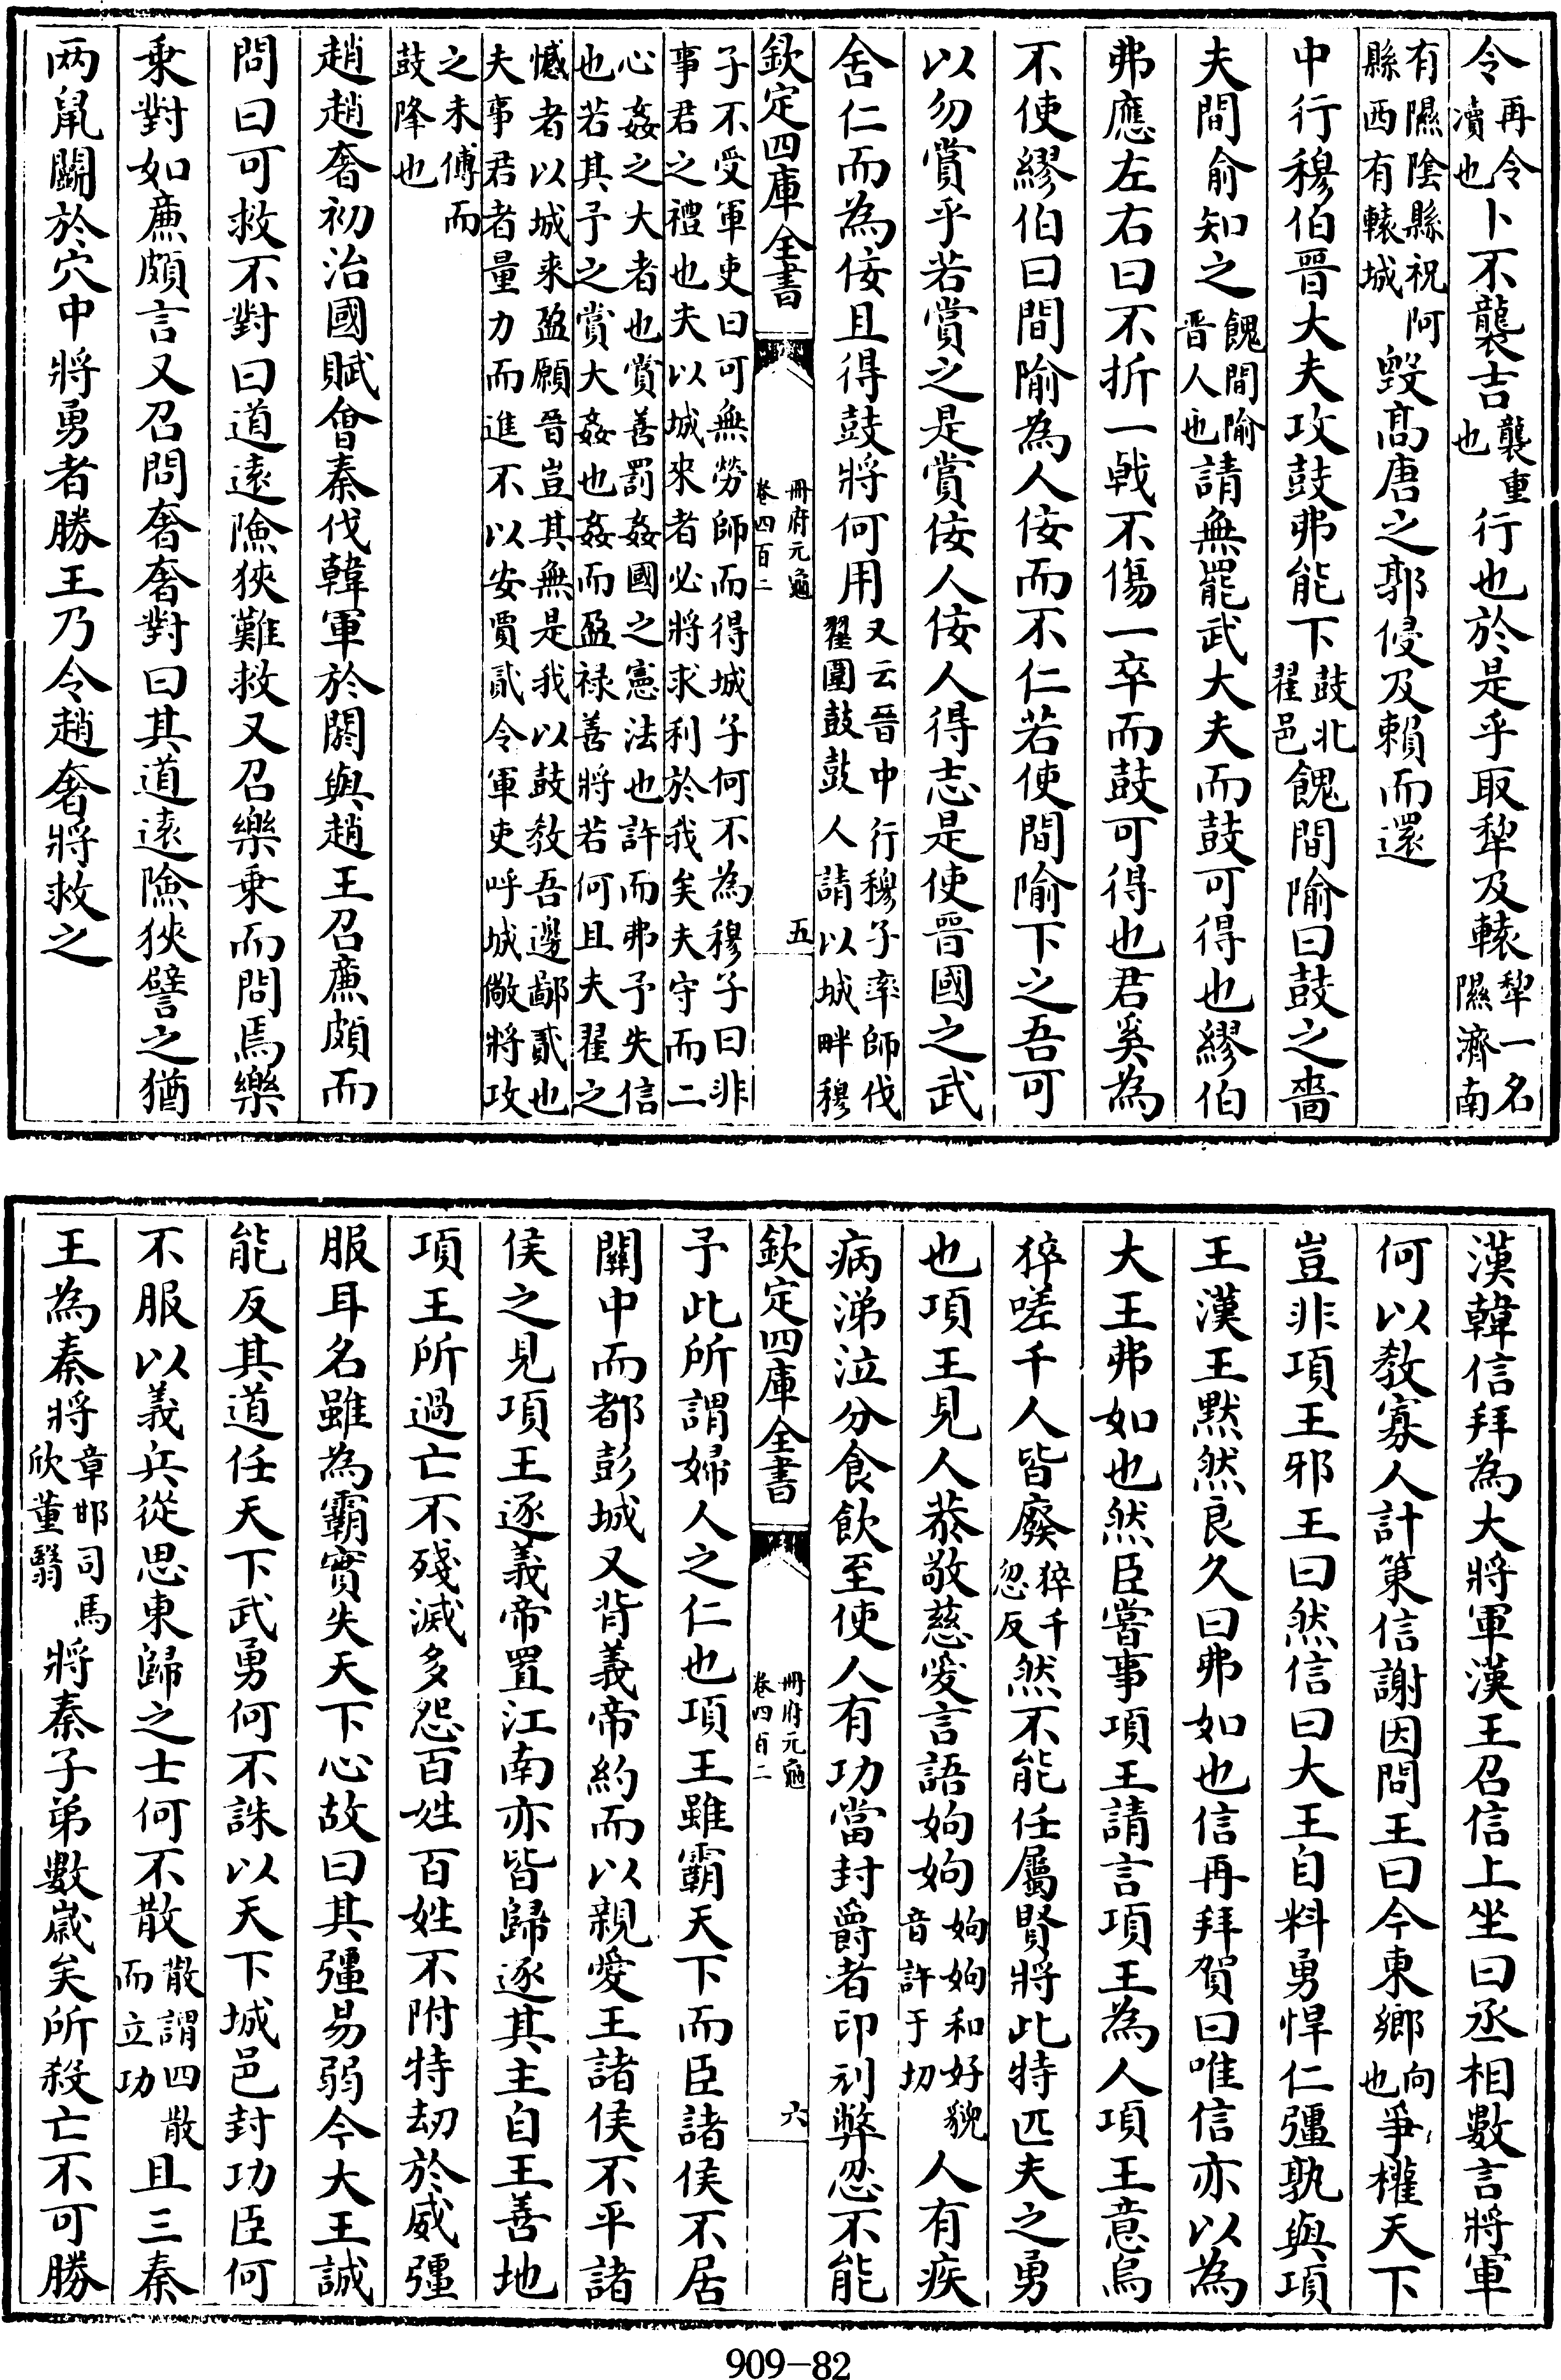 令再令瀆也卜不襲吉襲重也行也於是乎取犂及轅犂一名隰濟南
有隰陰縣祝阿縣西有轅城毀髙唐之郭侵及賴而還
中行穆伯晉大夫攻鼓弗能下鼓北翟邑餽間隃曰鼓之嗇
夫間俞知之餽間隃晉人也請無罷武大夫而鼓可得也繆伯
弗應左右曰不折一㦸不傷一卒而鼓可得也君奚為
不使繆伯曰間隃為人佞而不仁若使間隃下之吾可
以勿賞乎若賞之是賞佞人佞人得志是使晉國之武
舍仁而為佞且得鼓將何用又云晉中行穆子率師伐翟圍鼓鼓人請以城畔穆
欽定四庫全書 冊府元龜卷四百二 五
子不受軍吏曰可無勞師而得城子何不為穆子曰非事君之禮也夫以城來者必將求利於我矣夫守而二
心姦之大者也賞善罰姦國之憲法也許而弗予失信也若其予之賞大姦也姦而盈禄善將若何且夫翟之
憾者以城来盈願晉豈其無是我以鼓教吾邊鄙貳也夫事君者量力而進不以安賈貳令軍吏呼城儆將攻
之未傅而鼓降也
趙趙奢初治國賦㑹秦伐韓軍於閼與趙王召亷頗而
問曰可救不對曰道逺險狹難救又召樂乗而問焉樂
乗對如亷頗言又召問奢奢對曰其道逺險狹譬之猶
兩䑕鬬於穴中將勇者勝王乃令趙奢將救之
漢韓信拜為大將軍漢王召信上坐曰丞相數言將軍
何以教寡人計策信謝因問王曰今東鄉向也爭權天下
豈非項王邪王曰然信曰大王自料勇悍仁彊孰與項
王漢王黙然良久曰弗如也信再拜賀曰唯信亦以為
大王弗如也然臣嘗事項王請言項王為人項王意烏
猝嗟千人皆廢猝千忽反然不能任屬賢將此特匹夫之勇
也項王見人恭敬慈愛言語姁姁姁姁和好貌音許于切人有疾
病涕泣分食飲至使人有功當封爵者印刓弊忍不能
欽定四庫全書 冊府元龜卷四百二 六
予此所謂婦人之仁也項王雖霸天下而臣諸侯不居
關中而都彭城又背義帝約而以親愛王諸侯不平諸
侯之見項王逐義帝置江南亦皆歸逐其主自王善地
項王所過亡不殘滅多怨百姓百姓不附特刼於威彊
服耳名雖為霸實失天下心故曰其彊易弱今大王誠
能反其道任天下武勇何不誅以天下城邑封功臣何
不服以義兵從思東歸之士何不散散謂四散而立功且三秦
王為秦將章邯司馬欣董翳將秦子弟數歲矣所殺亡不可勝
909-82